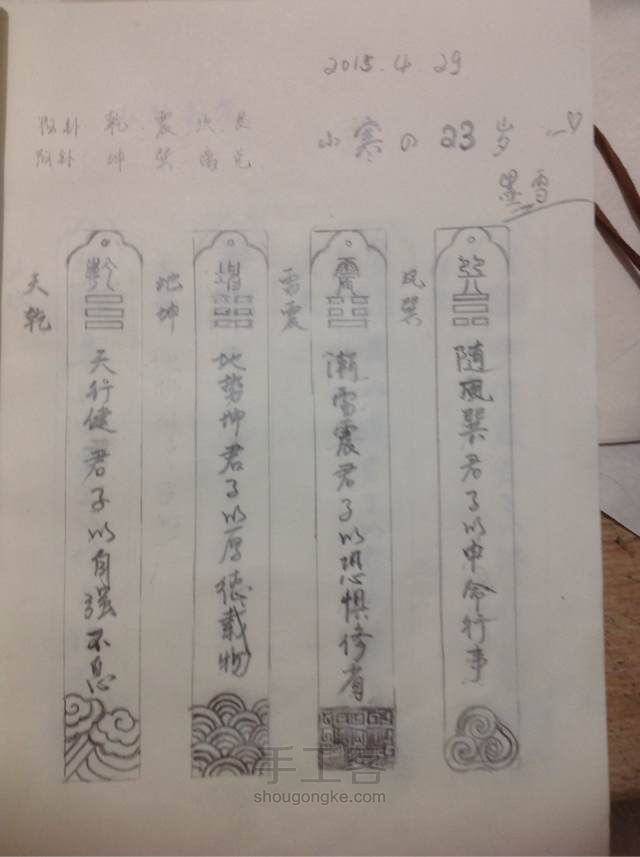 2015.4.29
阳卦 乾 震 坎 艮
阴卦 坤 巽 离 兑
小寒の23岁
墨雪
天乾
天行健君子以自强不息
地坤
地势坤君子以厚德载物
雷震
渐雷震君子以恐惧修省
风巽
随风巽君子以申命行事
手工客
shougongke.com